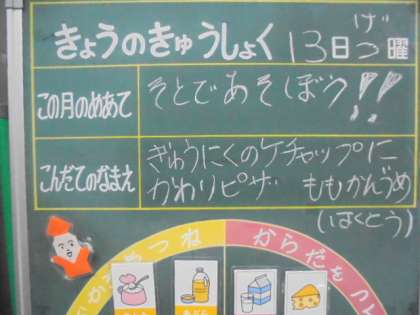 きょうのきゅうしょく 13日 げつ曜
この月のめあて そとであそぼう!!
こんだてのなまえ ぎゅうにくのケチャップに
かわりピザ ももかんづめ
(はくとう)
からだを